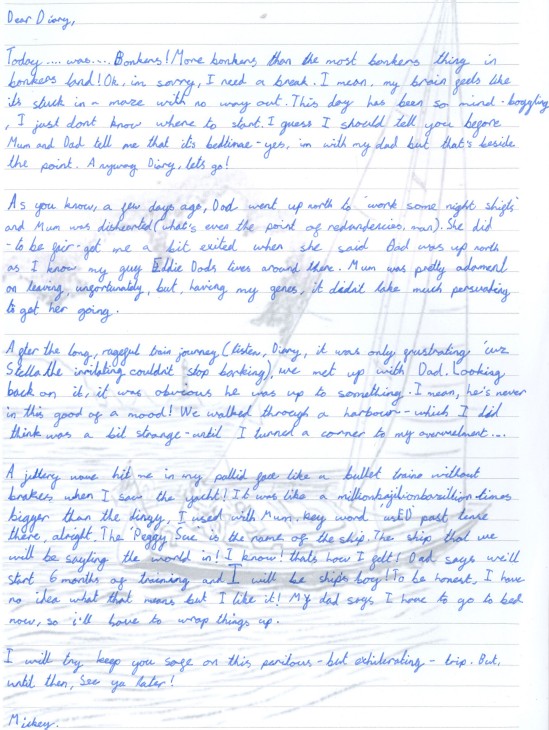 Dear Diary,
Today .... was .... Bonkers! More bonkers than the most bonkers thing in
bonkers land! Oh, im sorry, I need a break. I mean, my brain feels like
its stuck in a maze with no way out. This day has been so mind-boggling
, I just dont know where to start. I guess I should tell you before
Mum and Dad tell me that it's bedtime - yes, im with my dad but that's beside
the point. Anyway Diary, lets go!
As you know, a few days ago, Dad went up north to 'work some night shifts'
and Mum was disheartened (what's even the point of redundencies, man). She did
- to be fair - get me a bit exited when she said Dad was up north
as I know my guy Eddie Dods lives around there. Mum was pretty adament
on leaving, unfortunately, but, having my genes, it didn't take much persuading
to get her going.
After the long, rageful train journey (listen, Diary, it was only frustrating 'cuz
Stella the irritating couldn't stop barking), we met up with Dad. Looking
back on it, it was obvious he was up to something. I mean, he's never
in this good of a mood! We walked through a harbour - which I did
think was a bit strange - until I turned a corner to my overwelment....
A jittery wave hit me in my pallid face like a bullet train without
brakes when I saw the yacht! It was like a times
bigger than the dingy, I used with Mum. Key word useD past tense
there, alright. The 'Peggy Sue' is the name of the ship. The ship that we
will be sayling the world in! I know! thats how I felt! Dad says we'll
start 6 months of training and I will be ships boy! To be honest, I have
no idea what that means but I like it! My dad says I have to go to bed
now, so i'll have to wrap things up.
I will try keep you safe on this perilous - but exhilerating - trip. But,
until then, See ya later!
Mickey.